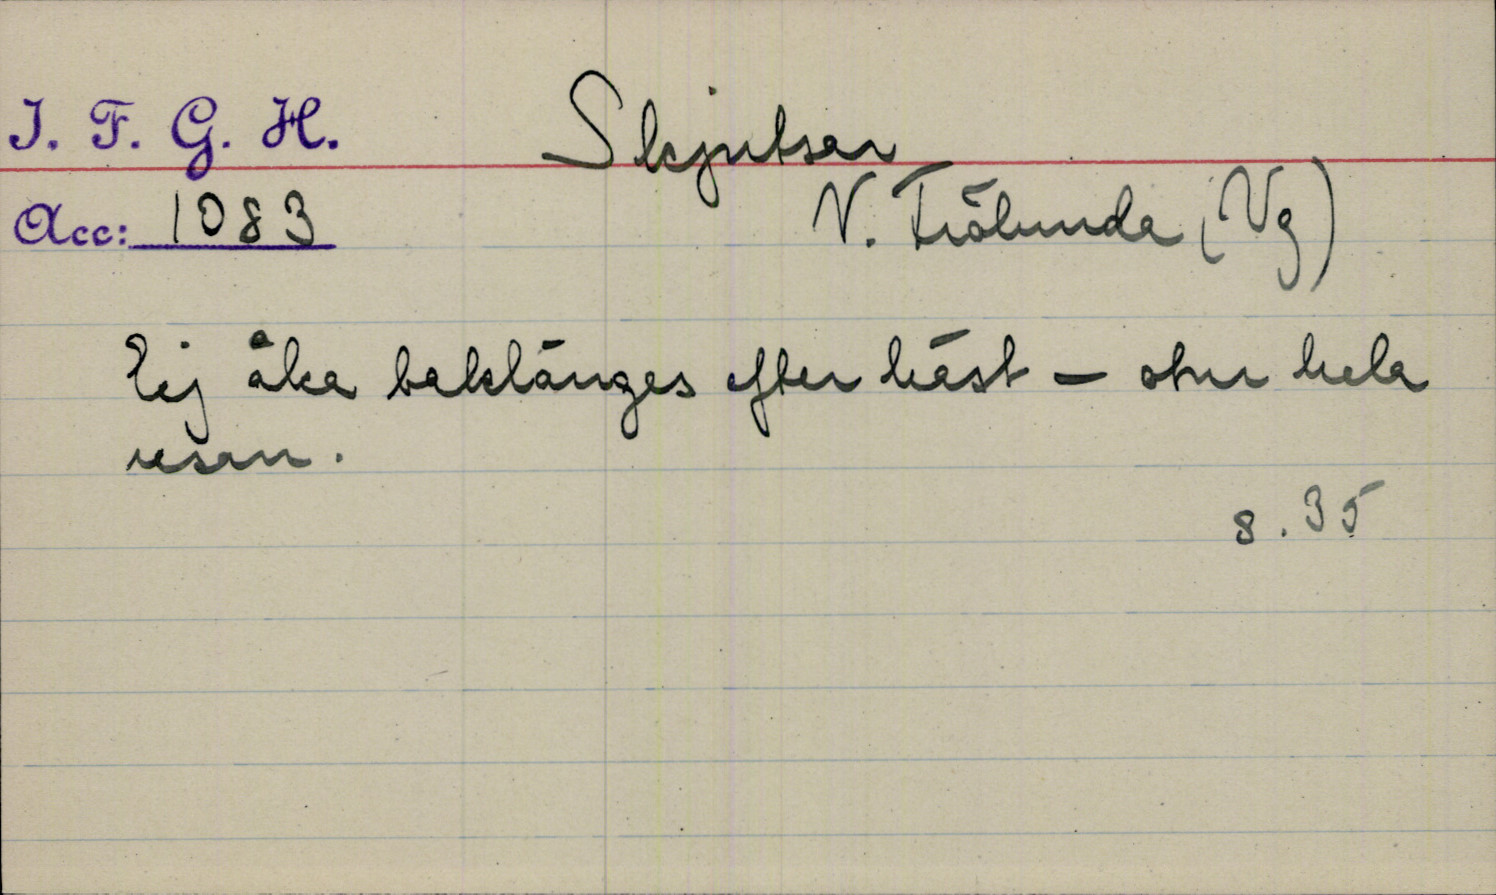 I. F. G. H.
Skjutsar
Acc: 1083
V. Frölunda (Vg)
Ej åka baklänges efter häst – otur hela
resan.
s. 35